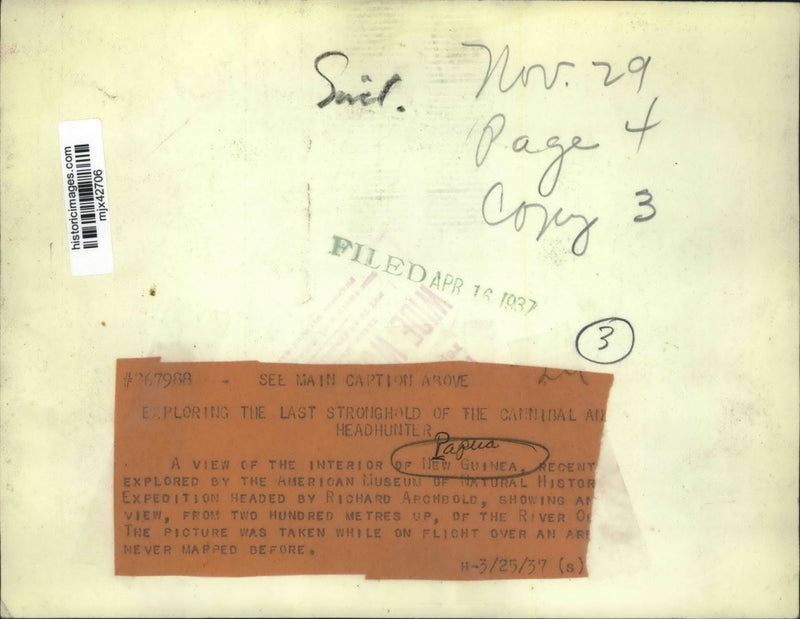 Nov. 29
Page 4
Copy 3
historicimages.com
mjx42706
FILED APR 16 1937
3
#367988 - SEE MAIN CAPTION ABOVE
EXPLORING THE LAST STRONGHOLD OF THE CANNIBAL AN
HEADHUNTER
Papua
A VIEW OF THE INTERIOR OF NEW GUINEA, RECENT
EXPLORED BY THE AMERICAN MUSEUM OF NATURAL HISTOR
EXPEDITION HEADED BY RICHARD ARCHBOLD, SHOWING AN
VIEW, FROM TWO HUNDRED METRES UP, OF THE RIVER O
THE PICTURE WAS TAKEN WHILE ON FLIGHT OVER AN ARE
NEVER MAPPED BEFORE.
H-3/25/37 (s)